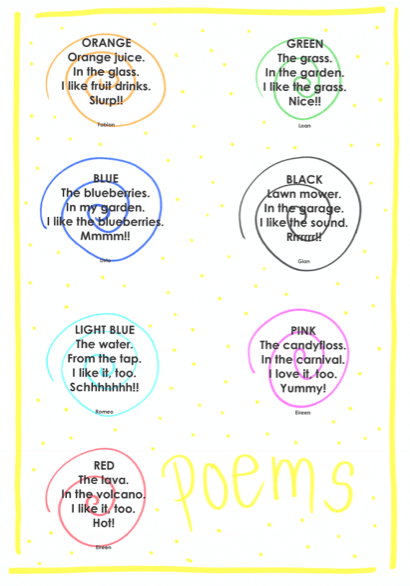 ORANGE
Orange juice.
In the glass.
I like fruit drinks.
Slurp!!
Fabian
GREEN
The grass.
In the garden.
I like the grass.
Nice!!
Loan
BLUE
The blueberries.
In my garden.
I like the blueberries.
Mmmm!!
BLACK
Lawn mower.
In the garage.
I like the sound.
Rrrrrr!!
Gian
LIGHT BLUE
The water.
From the tap.
I like it, too.
Schhhhhhh!!
Romeo
PINK
The candyfloss.
In the carnival.
I love it, too.
Yummy!
Eireen
RED
The lava.
In the volcano.
I like it, too.
Hot!
Eireen
poems